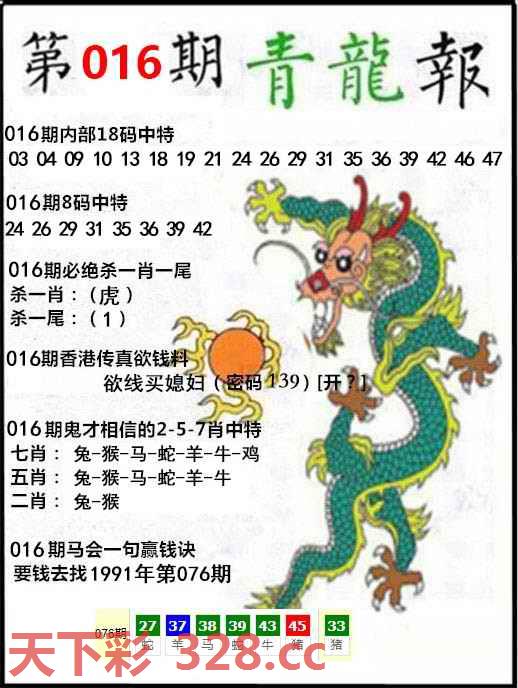 第016期 青龍報
016期内部18码中特
03 04 09 10 13 18 19 21 24 26 29 31 35 36 39 42 46 47
016期8码中特
24 26 29 31 35 36 39 42
016期必绝杀一肖一尾
杀一肖：（虎）
杀一尾：（1）
016期香港传真欲钱料
欲线买媳妇（密码139）[开？]
016期鬼才相信的2-5-7肖中特
七肖：兔-猴-马-蛇-羊-牛-鸡
五肖：兔-猴-马-蛇-羊-牛
二肖：兔-猴
016期马会一句赢钱诀
要钱去找1991年第076期
076期 27 37 38 39 43 45 33
蛇 羊 马 蛇 牛 猪 猪
天下彩 328.cc